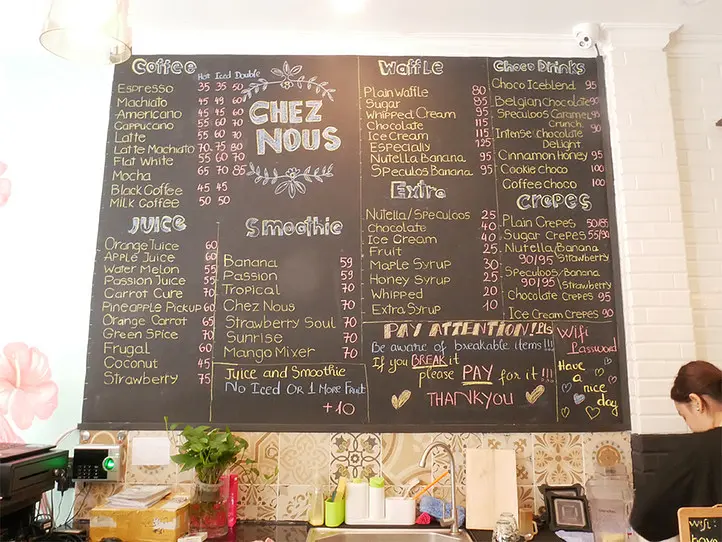 Coffee
Hot Iced Double
Espresso 35 35 50
Machiato 45 49 60
Americano 45 55 60
Cappucano 55 60 70
Latte 55 60 70
Latte Machiato 70 75 80
Flat White 55 60 70
Mocha 65 70 85
Black Coffee 45 45
Milk Coffee 50 50
CHEZ
NOUS
Waffle
Plain Waffle 80
Sugar 85
Whipped Cream 95
Chocolate 115
Ice Cream 115
Especially 125
Nutella Banana 95
Speculos Banana 95
Extra
Nutella/Speculoos 25
Chocolate 40
Ice Cream 40
Fruit 25
Maple Syrup 30
Honey Syrup 25
Whipped 20
Extra Syrup 10
Choco Drinks
Choco Iceblend 95
Belgian Chocolate 90
Speculoos Caramel
Crunch 95
Intense Chocolate 90
Delight
Cinnamon Honey 95
Cookie choco 100
Coffee choco 100
Crepes
Plain Crepes 50/55
Sugar Crepes 55/60
Nutella/Banana
90/95 Strawberry
Speculoos/Banana
90/95 Strawberry
Chocolate Crepes 95
Ice Cream Crepes 90
Juice
Orange Juice 60
Apple Juice 60
Water Melon 55
Passion Juice 55
Carrot Cure 70
Pineapple Pickup 60
Orange Carrot 65
Green Spice 70
Frugal 60
Coconut 45
Strawberry 75
Smoothie
Banana 59
Passion 59
Tropical 70
Chez Nous 70
Strawberry Soul 70
Sunrise 70
Mango Mixer 70
Juice and Smoothie
No Iced Or 1 More Fruit
+10
PAY ATTENTION!Pls
Be aware of breakable items!!!
If you BREAK it
please PAY for it!!!
THANKYOU
Wifi
Password
Have
a nice
day
Wifi: